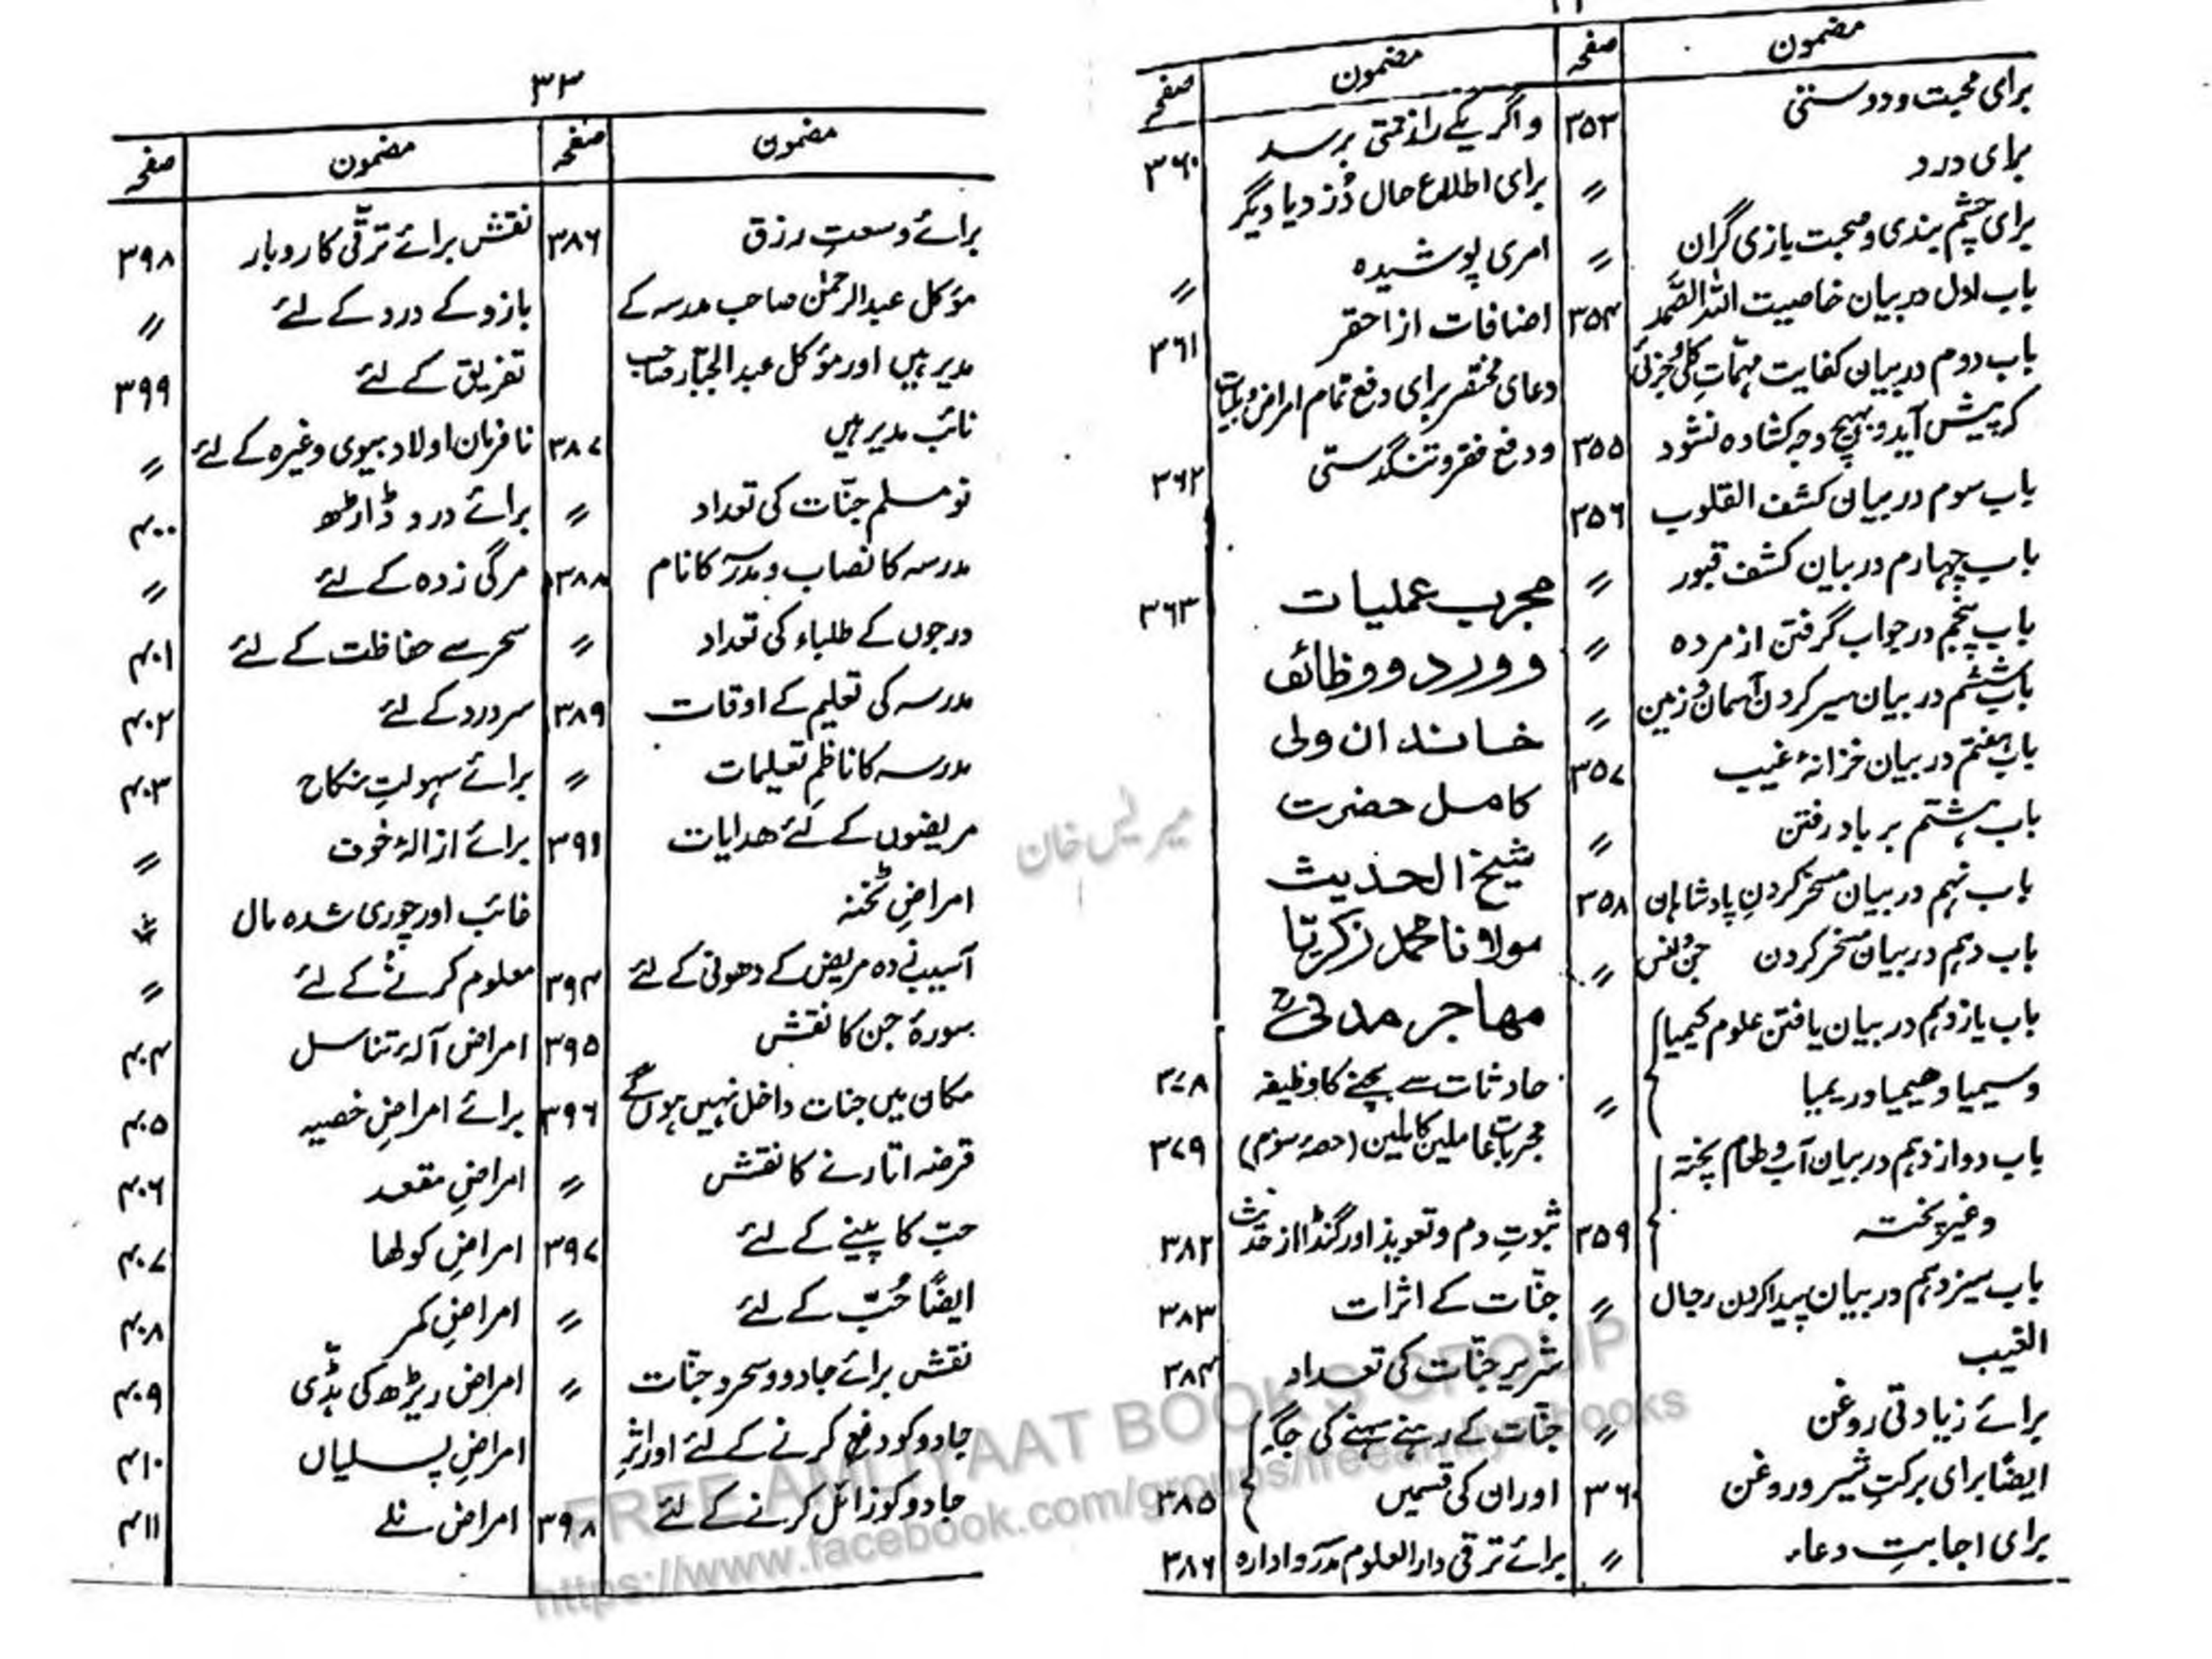 مضمون صفحہ مضمون صفحہ
برای محبت و دوستی ۳۵۳
برای درد 〃
برای چشم بندی و صحبت بازی گران 〃
باب اول در بیان خاصیت اللہ الصَّمد ۳۵۴
باب دوم در بیان کفایت مہمّاتِ کلی و جزئی
کہ پیش آید و بہیچ وجہ کشادہ نشود ۳۵۵
باب سوم در بیان کشف القلوب ۳۵۶
باب چہارم در بیان کشف قبور 〃
باب پنجم در جواب گرفتن از مردہ 〃
باب ششم در بیان سیر کردن آسمان و زمین 〃
باب ہفتم در بیان خزانۂ غیب ۳۵۷
باب ہشتم بر باد رفتن 〃
باب نہم در بیان مسخر کردنِ پادشاہان ۳۵۸
باب دہم در بیان مسخر کردن جن و انس 〃
باب یازدہم در بیان یافتن علوم کیمیا
و سیمیا و ھیمیا و ریمیا 〃
باب دوازدہم در بیان آب و طعام پختہ
و غیر پختہ ۳۵۹
باب سیزدہم در بیان پیدا کردن رجال 〃
الغیب
برائے زیادتی روغن 〃
ایضًا برای برکتِ شیر و روغن ۳۶۰
برای اجابتِ دعاء 〃
و اگر یکے را زحمتی برسد ۳۶۰
برای اطلاع حال دُزد یا دیگر
امری پوشیدہ 〃
اضافات از احقر ۳۶۱
دعای مختصر برای دفع تمام امراض و بلیات
و دفع فقر و تنگدستی ۳۶۲
مجرب عملیات ۳۶۳
و ورد و وظائف
خاندان ولی
کامل حضرت
شیخ الحدیث
مولانا محمد زکریّا
مہاجر مدنیؒ
حادثات سے بچنے کا وظیفہ ۳۷۸
مجرباتِ عاملین کاملین (حصۂ سوم) ۳۷۹
ثبوتِ دم و تعویذ اور گنڈا از حدیث ۳۸۲
جنّات کے اثرات ۳۸۳
شریر جنّات کی تعداد ۳۸۴
جنّات کے رہنے سہنے کی جگہ
اور ان کی قسمیں ۳۸۵
برائے ترقی دار العلوم مدرسہ و ادارہ ۳۸۶
۳۳
مضمون صفحہ مضمون صفحہ
برائے وسعتِ رزق ۳۸۶
مؤکل عبدالرحمٰن صاحب مدرسہ کے
مدیر ہیں اور مؤکل عبدالجبّار صاحب
نائب مدیر ہیں ۳۸۷
نو مسلم جنّات کی تعداد 〃
مدرسہ کا نصاب و مدرسہ کا نام ۳۸۸
درجوں کے طلباء کی تعداد 〃
مدرسہ کی تعلیم کے اوقات ۳۸۹
مدرسہ کا ناظمِ تعلیمات 〃
مریضوں کے لئے ھدایات ۳۹۱
امراضِ ٹخنہ
آسیب زدہ مریض کے دھونی کے لئے ۳۹۴
سورۂ جن کا نقش ۳۹۵
مکان میں جنات داخل نہیں ہوں گے ۳۹۶
قرضہ اتارنے کا نقش 〃
حبّ کا پینے کے لئے ۳۹۷
ایضًا حُبّ کے لئے 〃
نقش برائے جادو و سحر و جنّات 〃
جادو کو دفع کرنے کے لئے اور اثرِ
جادو کو زائل کرنے کے لئے ۳۹۸
نقش برائے ترقّی کاروبار ۳۹۸
بازو کے درد کے لئے 〃
تفریق کے لئے ۳۹۹
نافرمان اولاد بیوی وغیرہ کے لئے 〃
برائے درد ڈاڑھ ۴۰۰
مرگی زدہ کے لئے 〃
سحر سے حفاظت کے لئے ۴۰۱
سر درد کے لئے ۴۰۲
برائے سہولتِ نکاح ۴۰۳
برائے ازالۂ خوف 〃
غائب اور چوری شدہ مال 〃
معلوم کرنے کے لئے 〃
امراض آلۂ تناسل ۴۰۴
برائے امراضِ خصیہ ۴۰۵
امراضِ مقعد ۴۰۶
امراضِ کولھا ۴۰۷
امراضِ کمر ۴۰۸
امراض ریڑھ کی ہڈّی ۴۰۹
امراضِ پسلیاں ۴۱۰
امراض نلے ۴۱۱
FREE AMLIYAAT BOOKS GROUP
https://www.facebook.com/groups/freeamliyatbooks